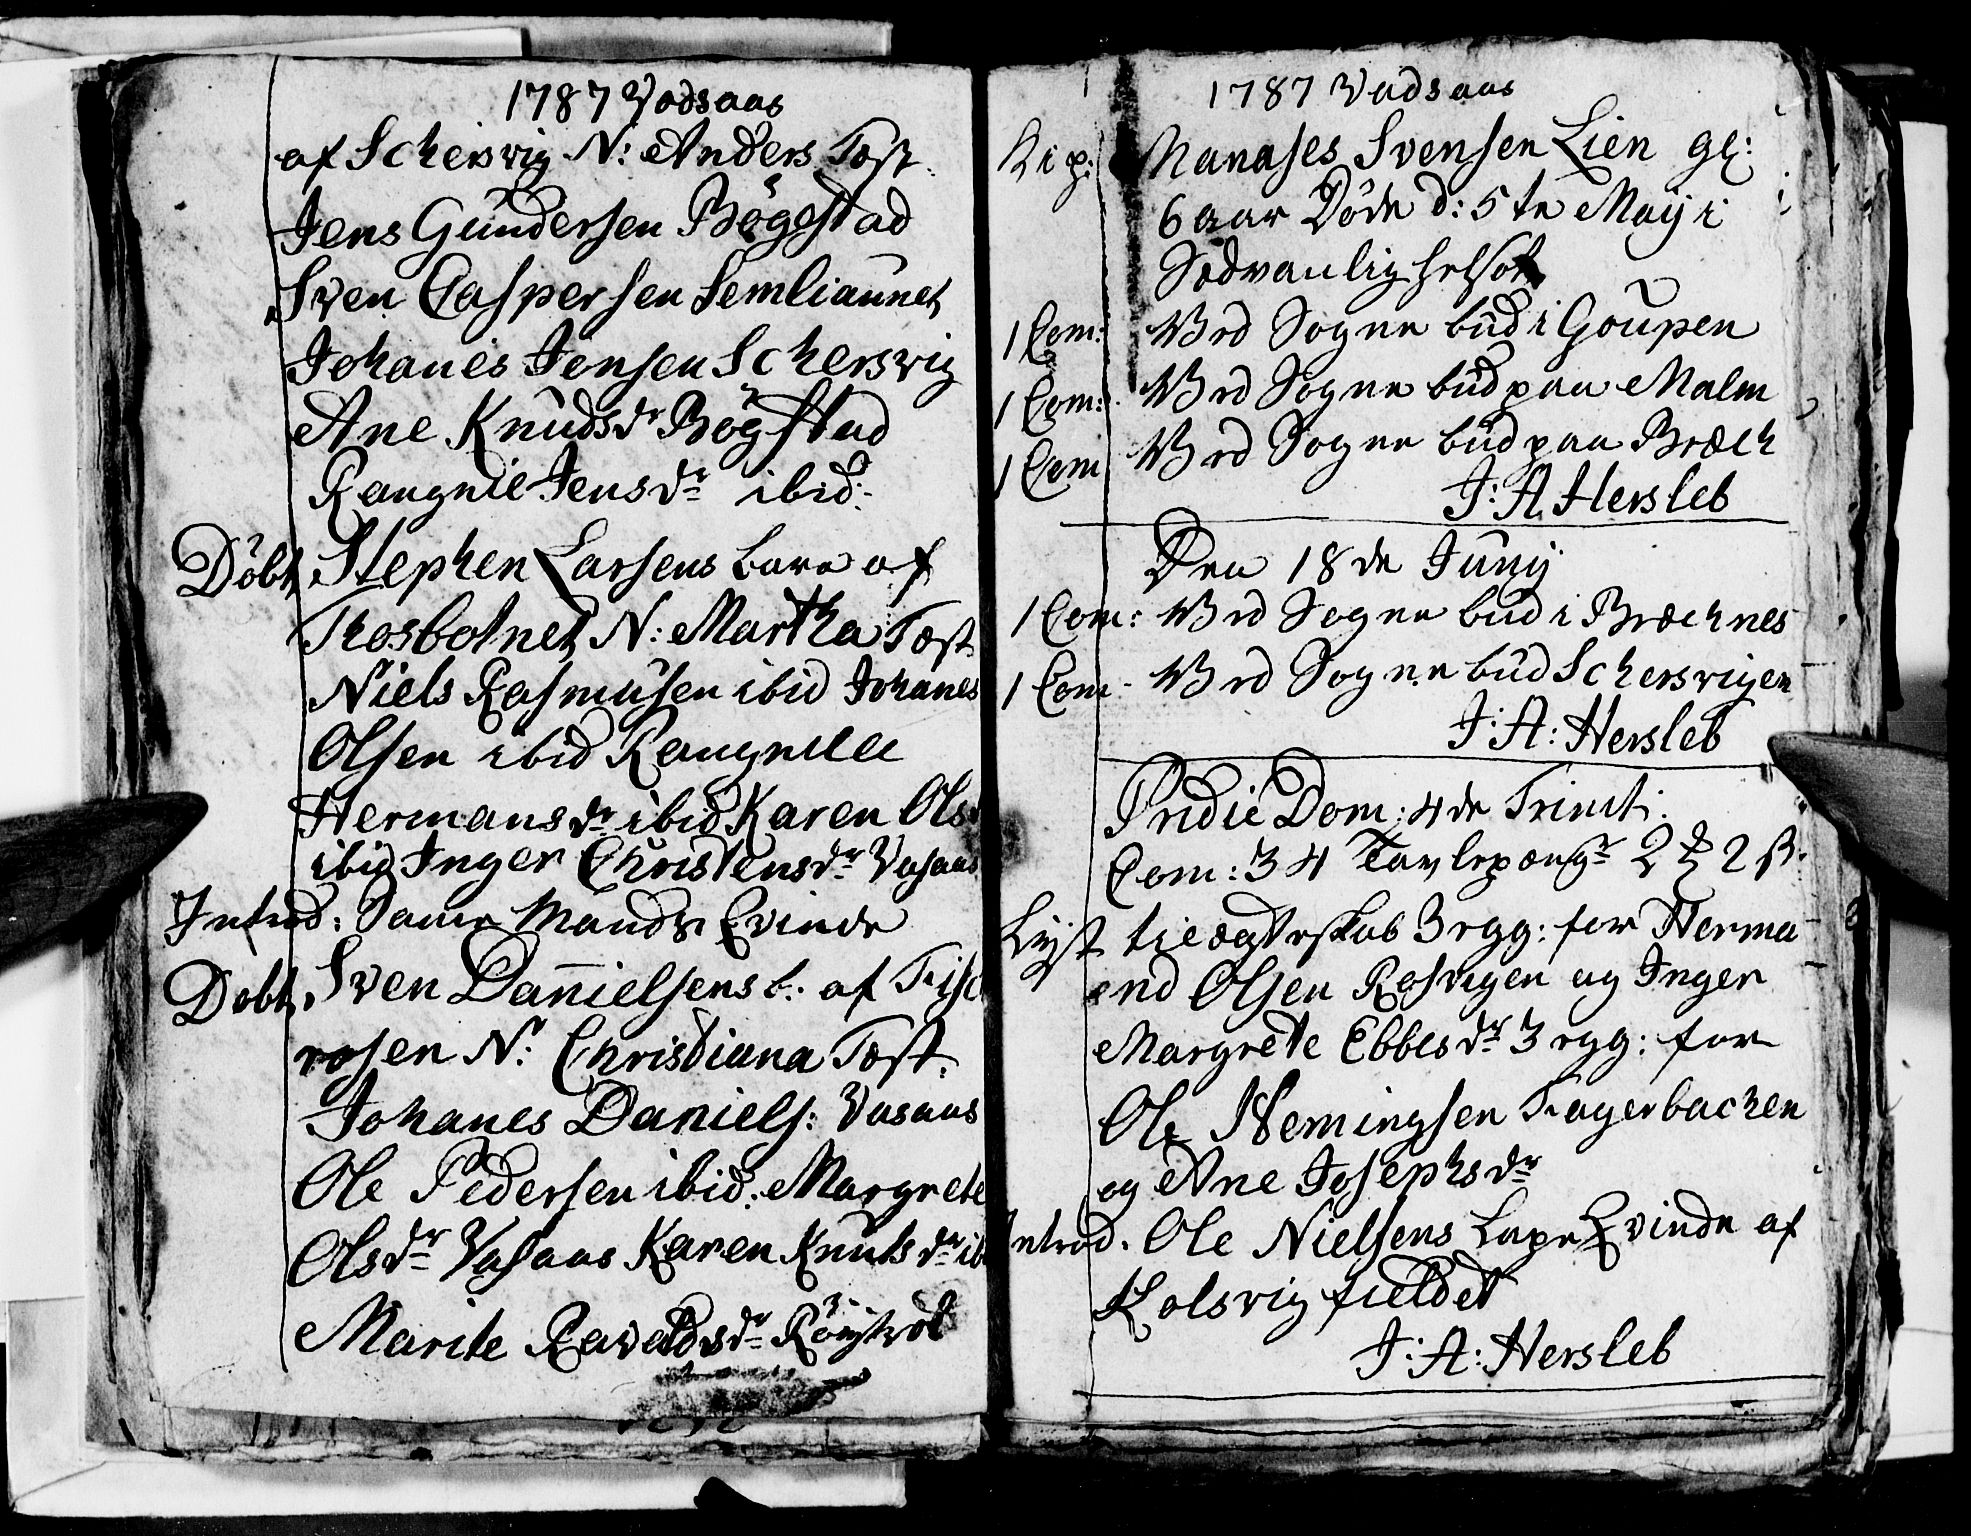 1787 Vadsaas
af Schersvig N: Anders Test.
Jens Gundersen Bøgestad
Sven Caspersen Semliaunet
Johanes Jensen Schersvig
Ane Knudsdr Bøgstad
Rangnil Jensdr ibid:
Døbt Stephen Larsens barn af
Thosbotnet N: Martha Test
Niels Rasmusen ibid Johanes
Olsen ibid Rangnille
Hermansdr ibid Karen Ols
ibid Inger Christensdr Vasaas
Introd: Same Mands Qvinde
Døbt Sven Danielsens b: af
rosen N: Christiana Test.
Johanes Daniels: Vasaas
Ole Pedersen ibid: Margrete
Olsdr Vasaas Karen Knutsdr ib
Marite
1787 Vadsaas
Manases Svensen Lien gl:
6 aar Døde d: 5te Maij i
Sædvanlig helsot
1 Com: Ved Sogne bud i Goupen
1 Com: Ved Sogne bud paa Malm
1 Com Ved Sogne bud paa Bræch
J: A Hersleb
Den 18de Junij
1 Com: Ved Sogne bud i Bræchnes
1 Com Ved Sogne bud Schersvigen
J: A: Hersleb
Pridie Dom: 4de Trinit:
Com: 34 Tavlepenge 2 ß.
Lyst til ægteskab 3 gg: for Herma
end Olsen Rosvigen og Inger
Margrete Ebbesdr 3 gg: for
Ole Hemingsen Tragerbachen
og Ane Josephsdr
Introd. Ole Nielsens Lape Qvinde af
Kolsvigfieldet
J: A: Hersleb